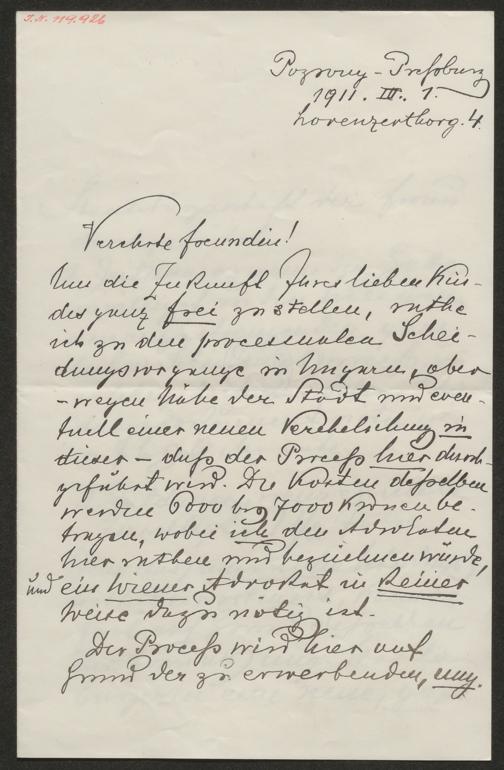 I.N. 119.926
Pozsony - Preßburg
1911. III. 1.
Lorenzerthorg. 4.
Verehrte Freundin!
Um die Zukunft Ihres lieben Kin-
des ganz frei zu stellen, rathe
ich zu dem processualen Schei-
dungsvorgange in Ungarn, aber
- wegen Nähe der Stadt und even-
tuell einer neuen Verehelichung in
dieser - daß der Proceß hier durch-
geführt wird. Die Kosten desselben
werden 6000 bis 7000 Kronen be-
tragen, wobei ich den Advokaten
hier rathen und bezeichnen würde,
und ein Wiener Advokat in keiner
Weise dazu nötig ist.
Der Proceß wird hier auf
Grund der zu erwerbenden, ung.